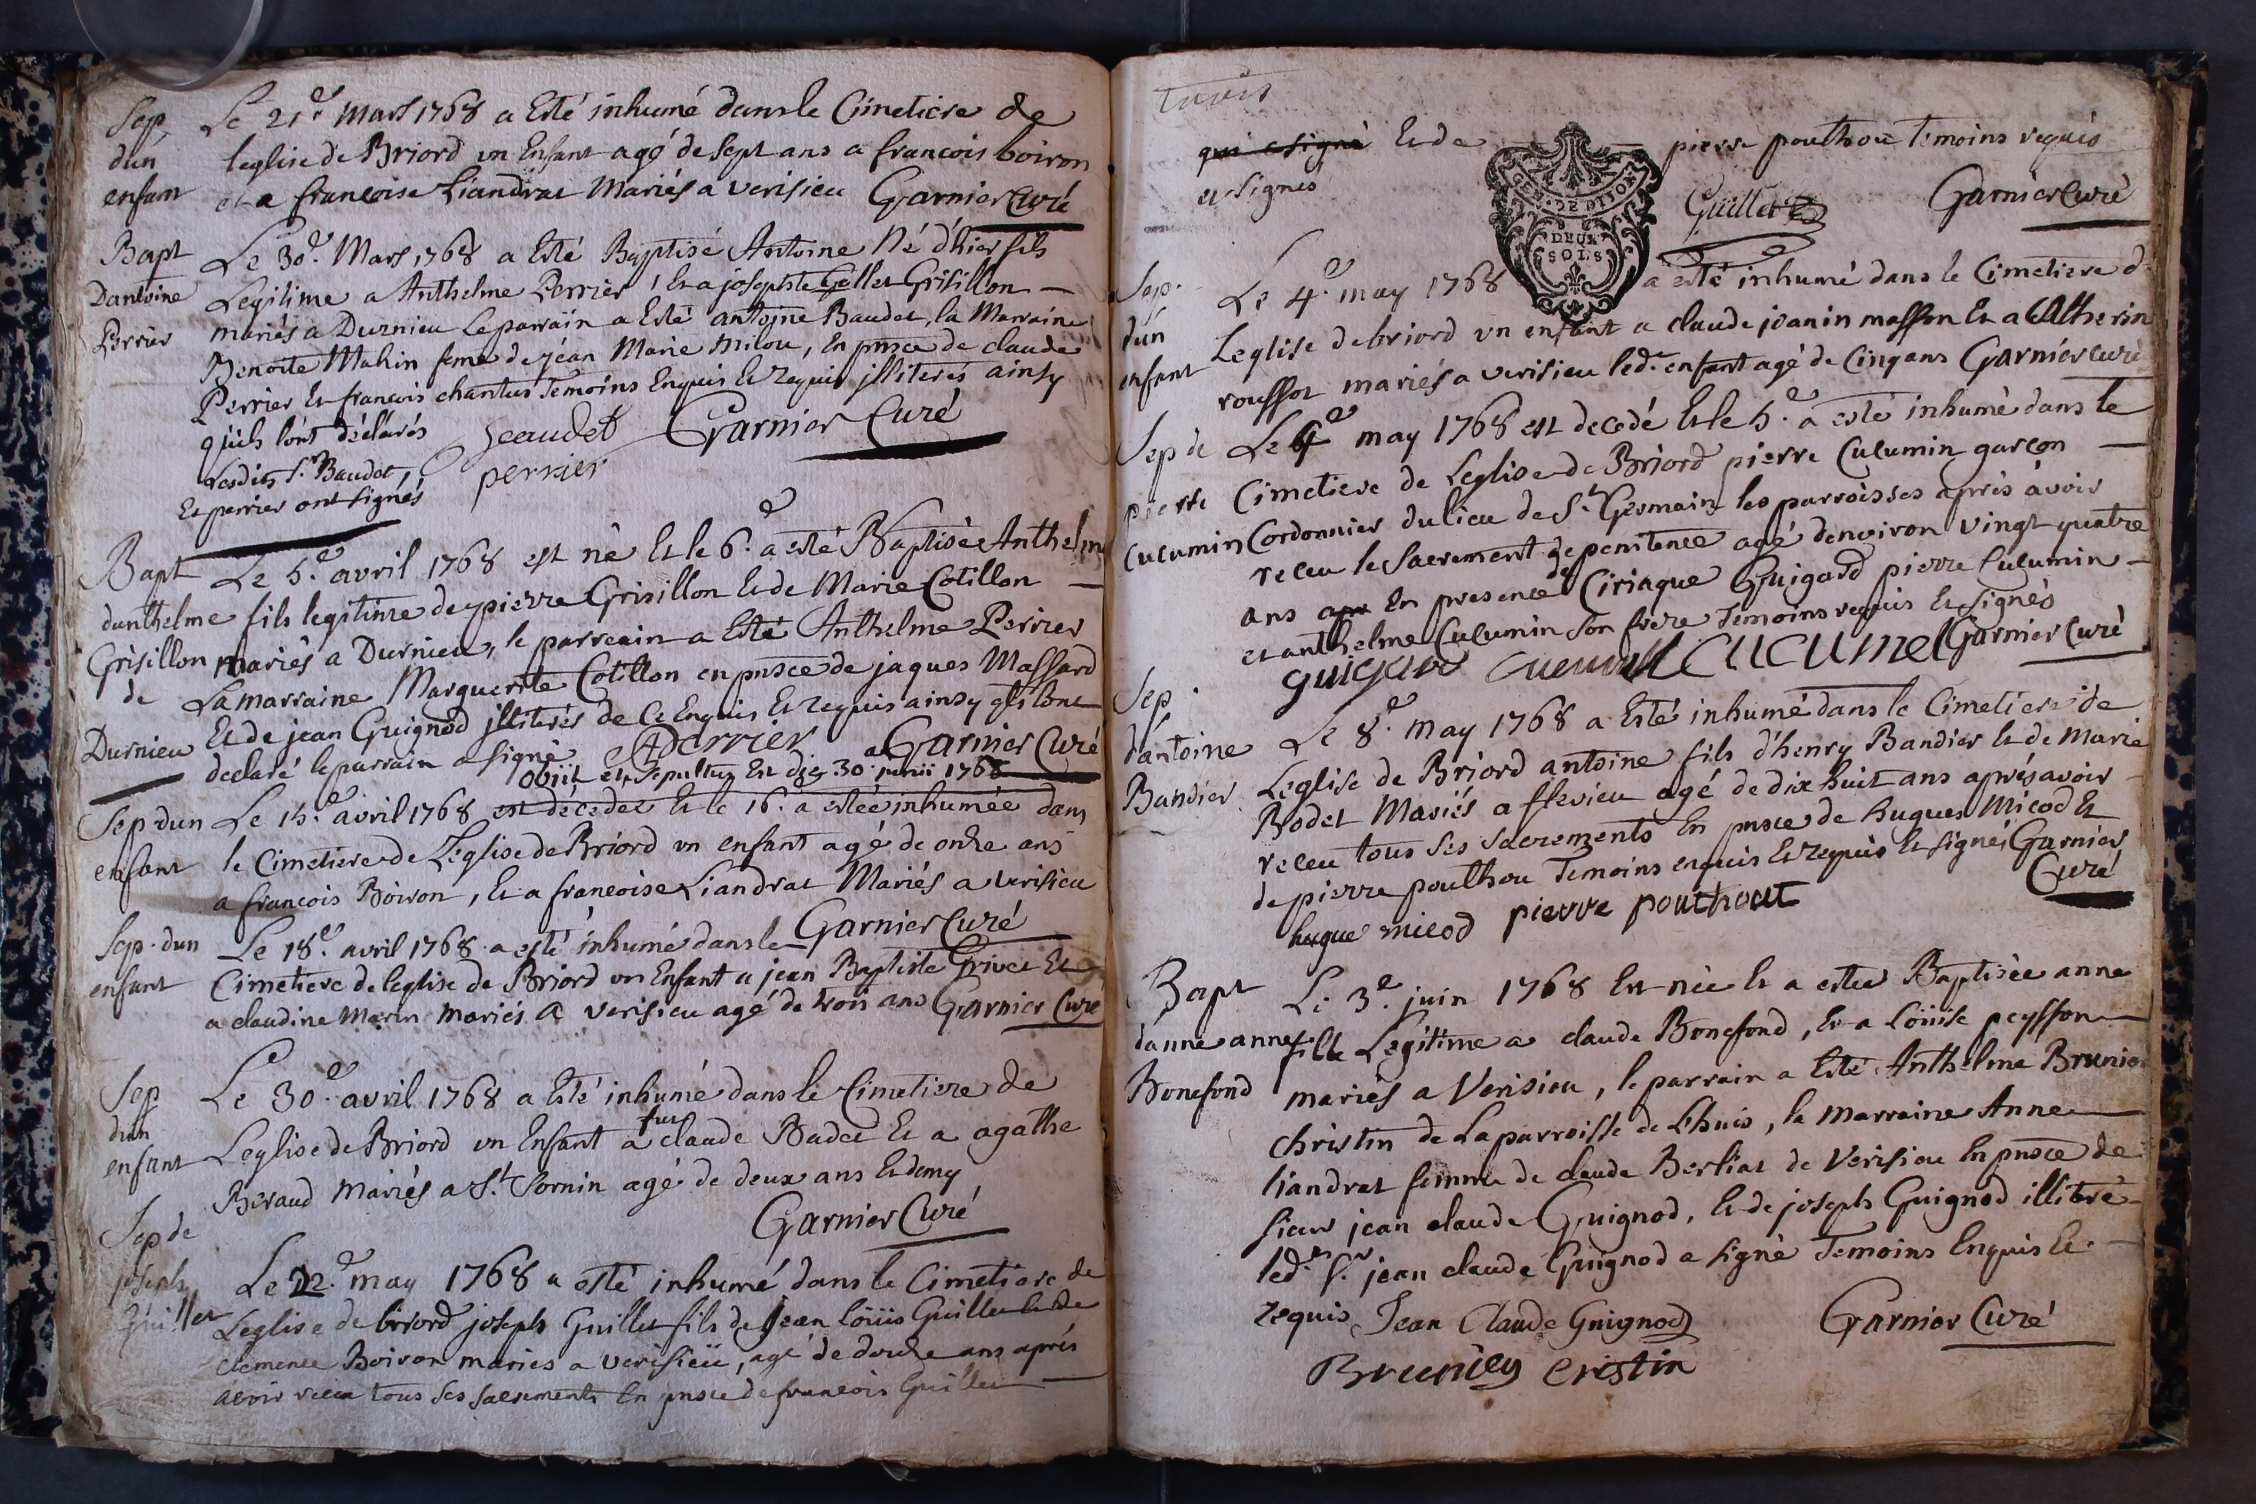 Sep. Le 21e Mars 1768 a Esté inhumé dans le Cimetiere de
d'un leglise de Briord un Enfant agé de sept ans a francois boiron
enfant et a francoise Liandrat Mariés a verisieu Garnier Curé
Bapt Le 30e. Mars 1768 a Esté Baptisé Antoine Né d'hier fils
Dantoine Legitime a Anthelme Perrier, Et a josephte Gellet Grisillon
Perrier mariés a Durnieu Le parrain a Esté antoine Baudet, la Marraine
Benoite Mahin feme de jéan Marie Milou, En pnsce de claude
Perrier Et francois chantus Temoins Enquis Et requis illiterés ainsy
qu'ils l'ont déclarés Garnier Curé
Lesdits Sr. Baudet, perrier
Et perrier ont signés
Bapt Le 5e. avril 1768 est né Et le 6e. a esté Baptisé Anthelm
danthelme fils legitime de pierre Grisillon Et de Marie Cotillon
Grisillon mariés a Durnieu, le parreain a Esté Anthelme Perrier
de La marraine Marguerite Cotillon en pnsce de jaques Massard
Durnieu Et de jean Guignod illiterés de Ce Enquis Et requis ainsy qls lont
declaré le parrain a signé APerrier Garnier Curé
Obiit et Sepultus Est die 30 junii 1768
Sep dun Le 15e. avril 1768 est décedé Et le 16e. a estée inhumée dans
enfant le Cimetiere de L'eglise de Briord un enfant agé de onze ans
a francois Boiron, Et a francoise Liandrat Mariés a verisieu
Garnier Curé
Sep. dun Le 18e. avril 1768 a esté inhumé dans le
enfant Cimetiere de leglise de Briord un Enfant a jean Baptiste Grivet Et
a claudine Marin mariés a verisieu agé de trois ans Garnier Curé
Sep Le 30e. avril 1768 a Esté inhumé dans le Cimetiere de
dun Leglise de Briord un Enfant a feu claude Badet Et a agathe
enfant Beraud mariés a St. Sornin agé de deux ans Et demy
Garnier Curé
Sep de Le 2e. may 1768 a esté inhumé dans le Cimetiere de
joseph Leglise de briord joseph Guillet fils de Jean loüis Guillet Et de
Guillet clemence Boiron mariés a verisieü, agé de douze ans aprés
avoir receu tous ses sacrements En pnsce de francois Guillet
trois
qui a signé Et de pierre poulthou Temoins requis
et signés Guillet Garnier Curé
GEN. DE DIJON
DEUX
SOLS
Sep. Le 4e. may 1768 a esté inhumé dans le Cimetiere d
d'un Leglise de briord un enfant a claude joanin masson Et a Catherin
enfant roussot mariés a verisieu led. enfant agé de Cinq ans Garnier Curé
Sep de Le 4e may 1768 est decedé Et le 5e. a esté inhumé dans le
pierre Cimetiere de Leglise de Briord pierre Cucumin garcon
Cucumin Cordonnier du lieu de St. Germain les parroisses aprés avoir
receu le Sacrement de penitence agé denviron vingt quatre
ans En presence de Ciriaque Guigard pierre Cucumin
et anthelme Cucumin son frere Temoins requis Et signés
CUCUMEL Garnier Curé
Sep. Le 8e. may 1768 a Esté inhumé dans le Cimetiere de
d'antoine Leglise de Briord antoine fils d'henry Bandier Et de Marie
Bandier Bodet Mariés a flevieu agé de dix huit ans aprés avoir
receu tous ses sacrements En pnsce de hugues Micod Et
de pierre poulthou Temoins enquis Et requis Et signés Garnier
Curé
hugue micod pierre pouthout
Bapt Le 3e. juin 1768 Est née Et a estée Baptisée anne
d'anne anne fille Legitime a claude Bonefond, Et a Loüise peysson
Bonefond mariés a Verisieu, le parrain a Esté Anthelme Brunier
christin de La parroisse de Lhuis, la marraine Anne
liandrat femme de claude Berliat de Verisieu En pnsce de
sieur jean claude Guignod, Et de joseph Guignod illiteré
led. Sr. jean claude Guignod a signé Temoins Enquis Et
requis Jean Claude Guignod Garnier Curé
Brunier cristin